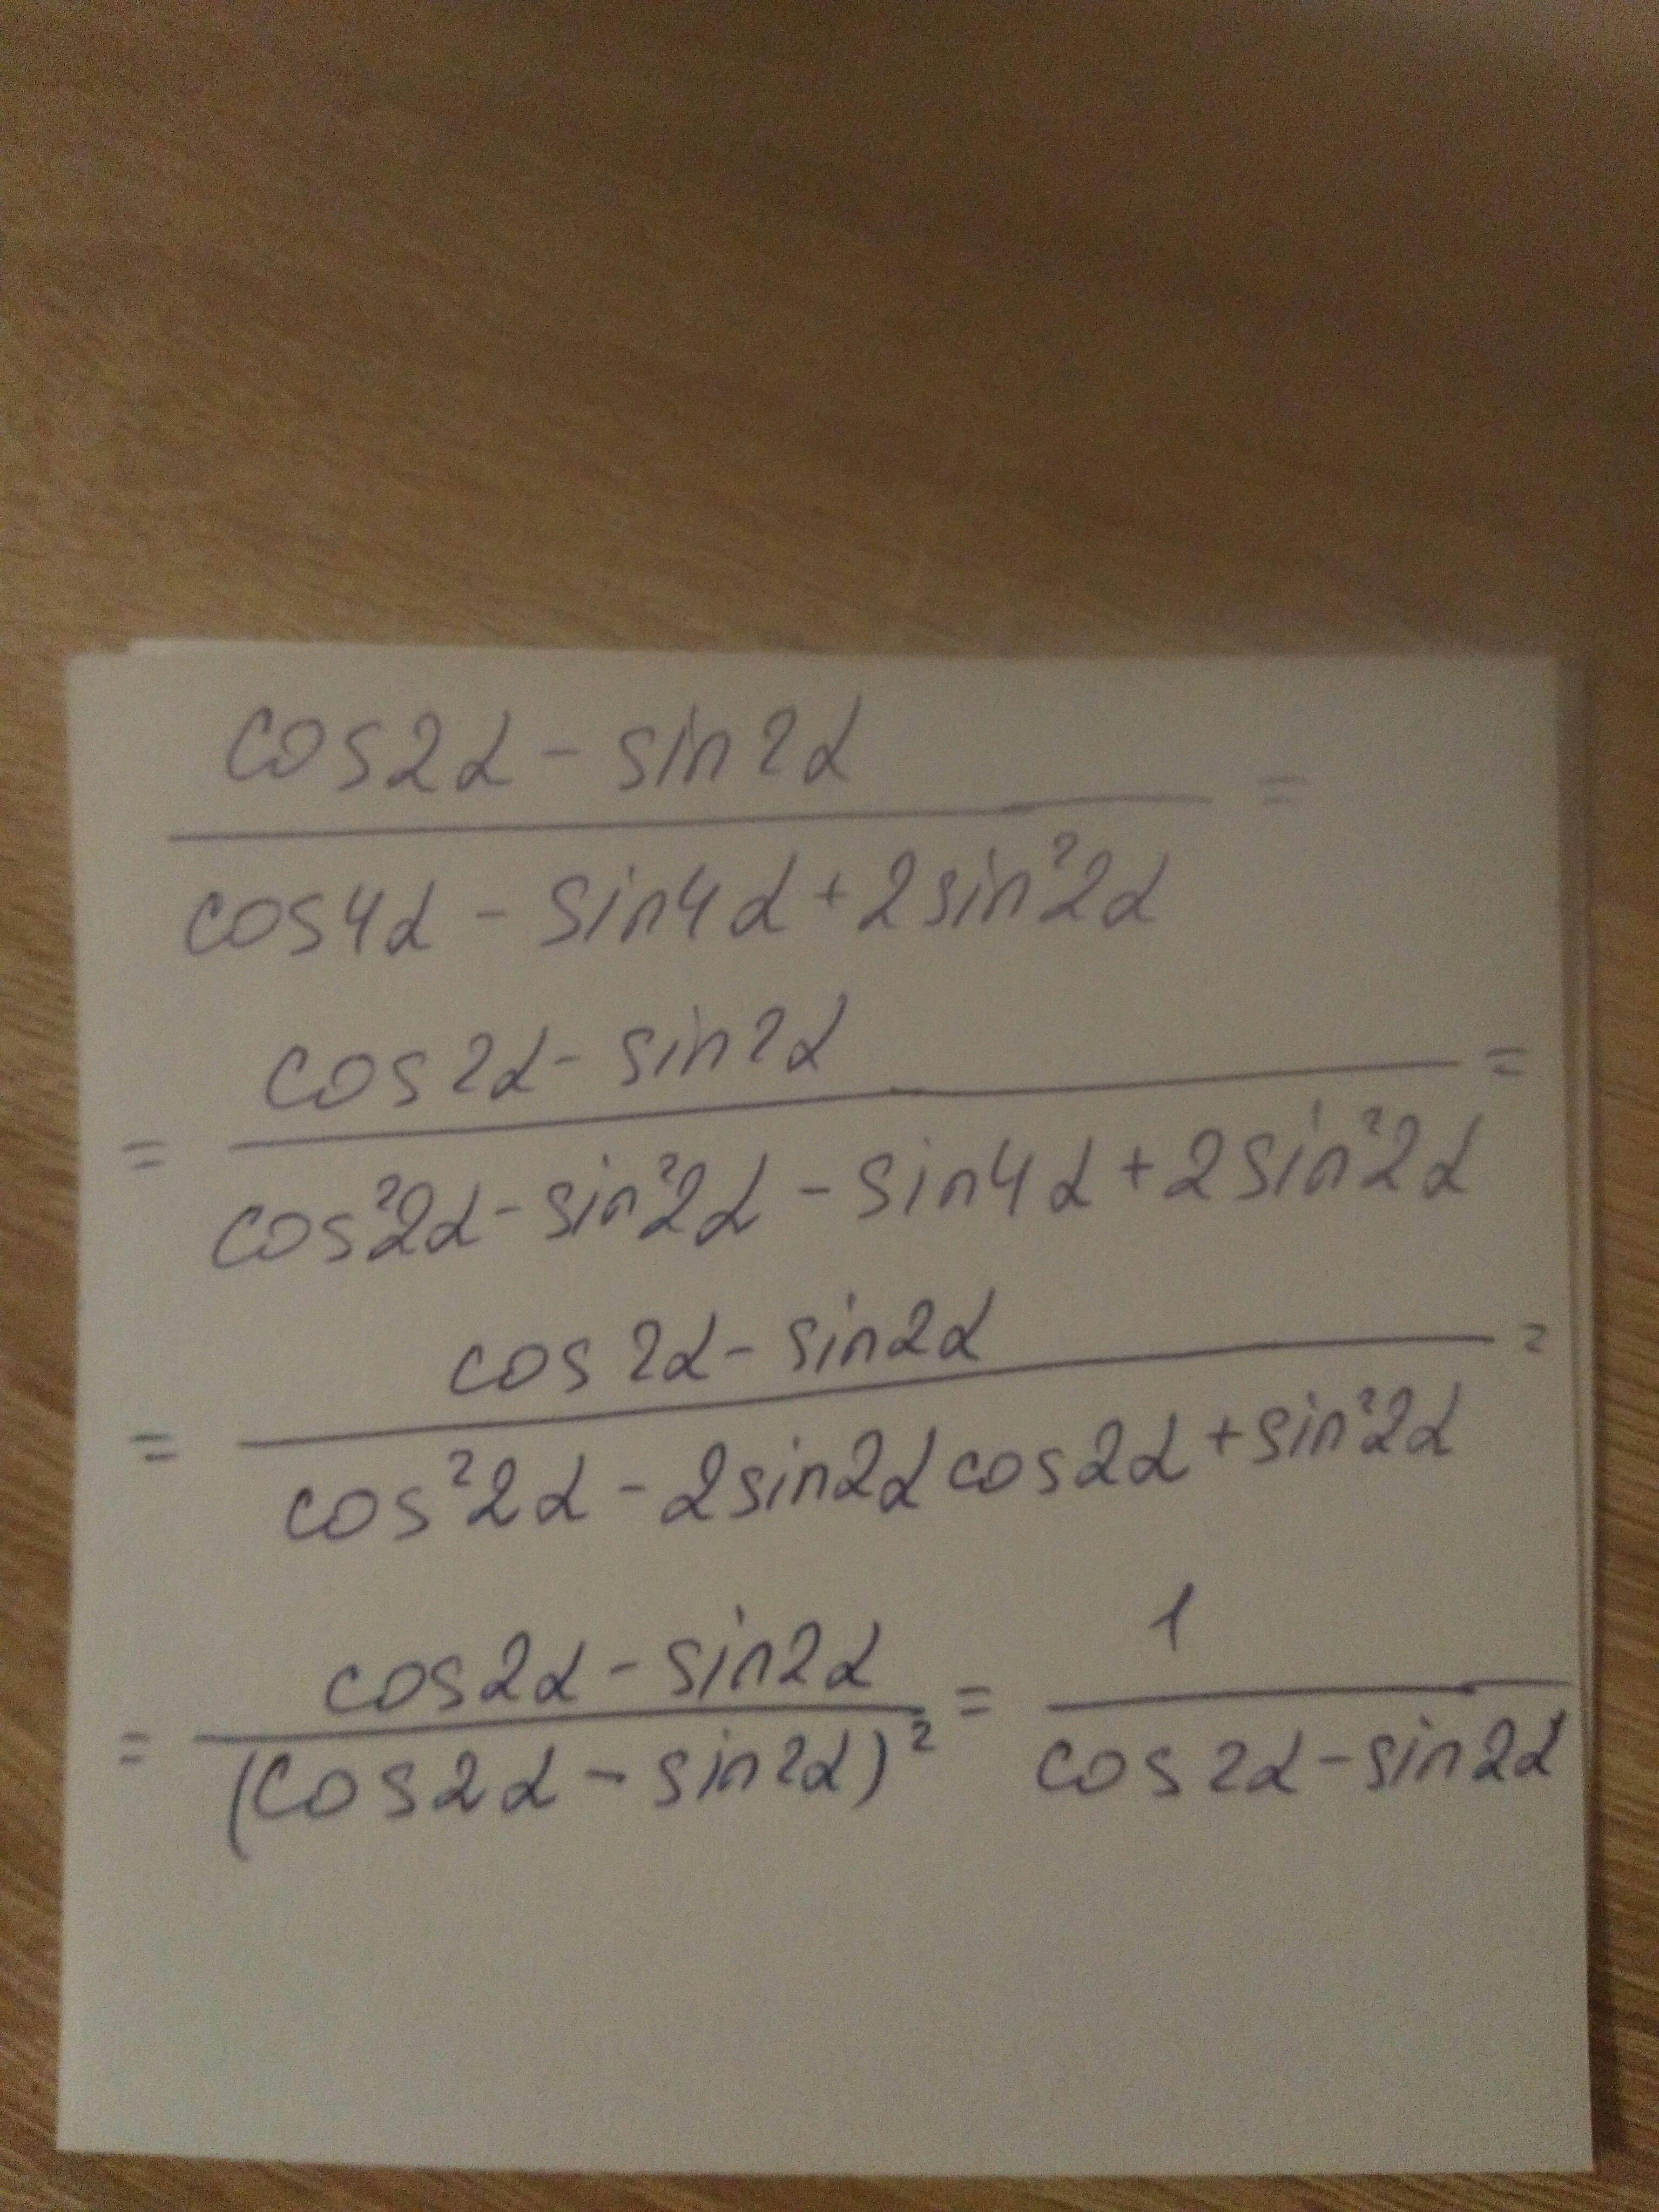 cos2α - sin2α
cos4α - sin4α + 2sin²2α =
= cos2α - sin2α
cos²2α - sin²2α - sin4α + 2sin²2α =
= cos2α - sin2α
cos²2α - 2sin2α cos2α + sin²2α =
= cos2α - sin2α
(cos2α - sin2α)² = 1
cos2α - sin2α